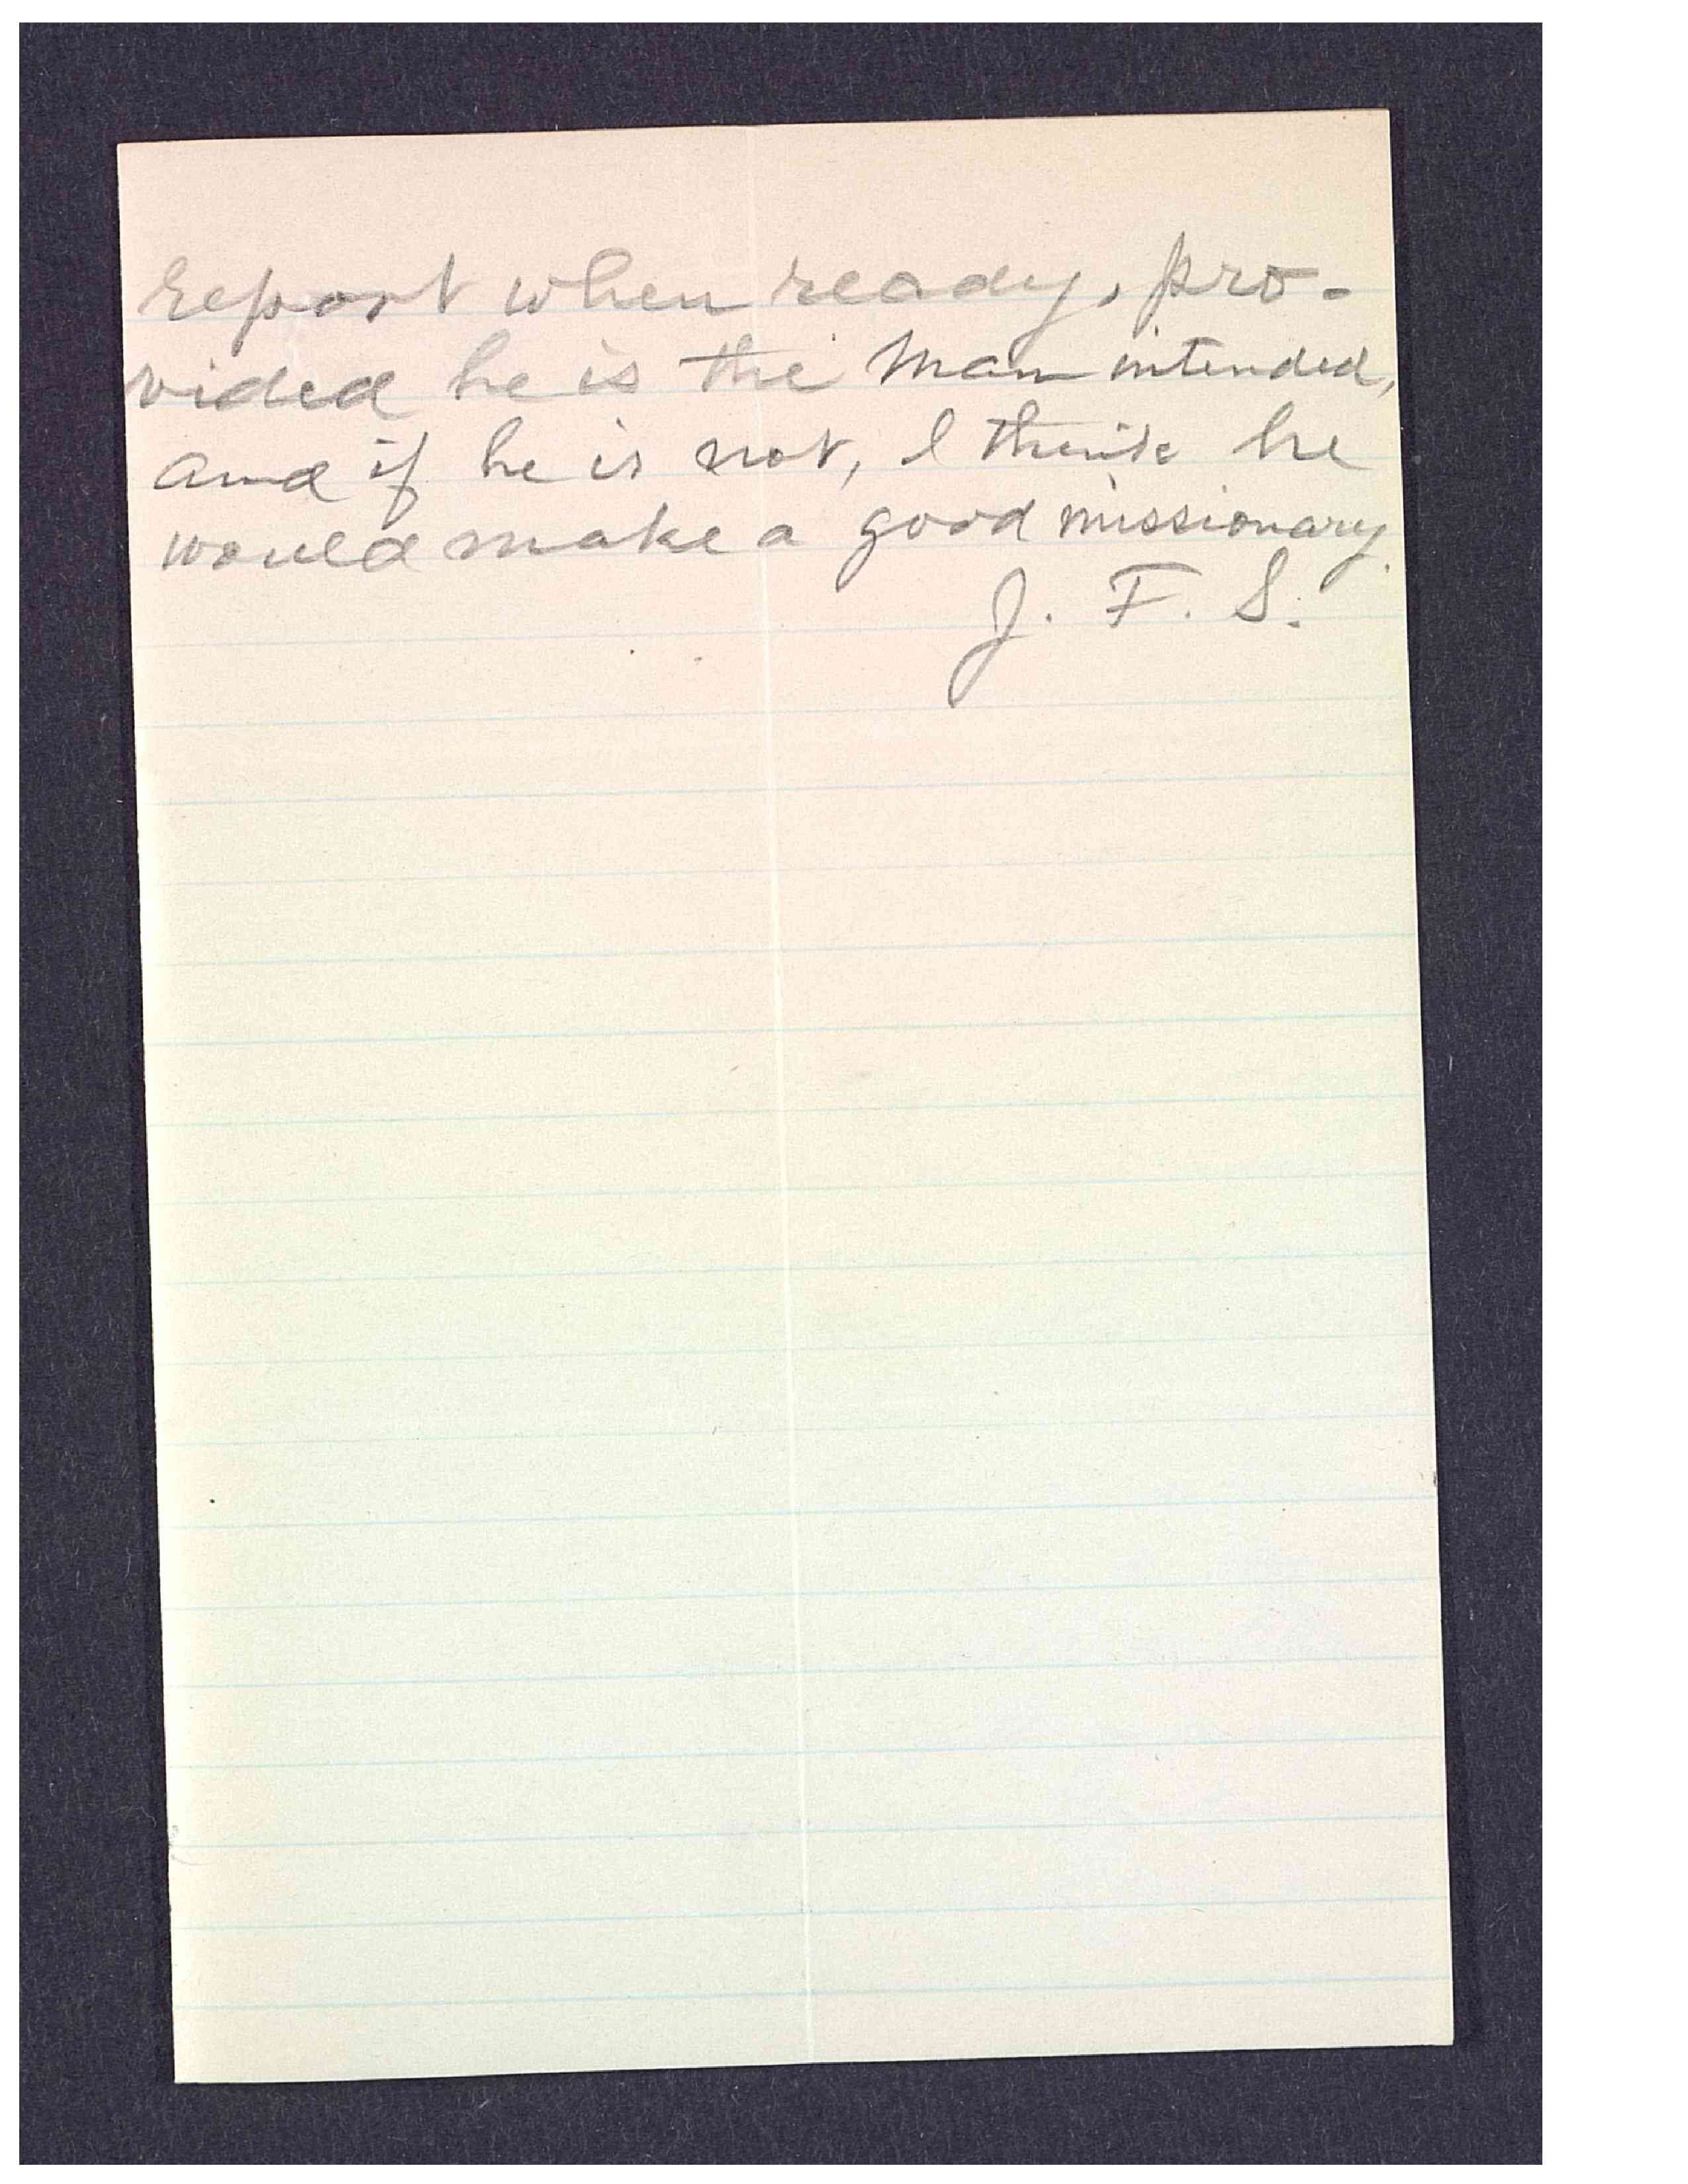 report when ready, pro-
vided he is the man intended,
and if he is not, I think he
would make a good missionary.
J. F. S.